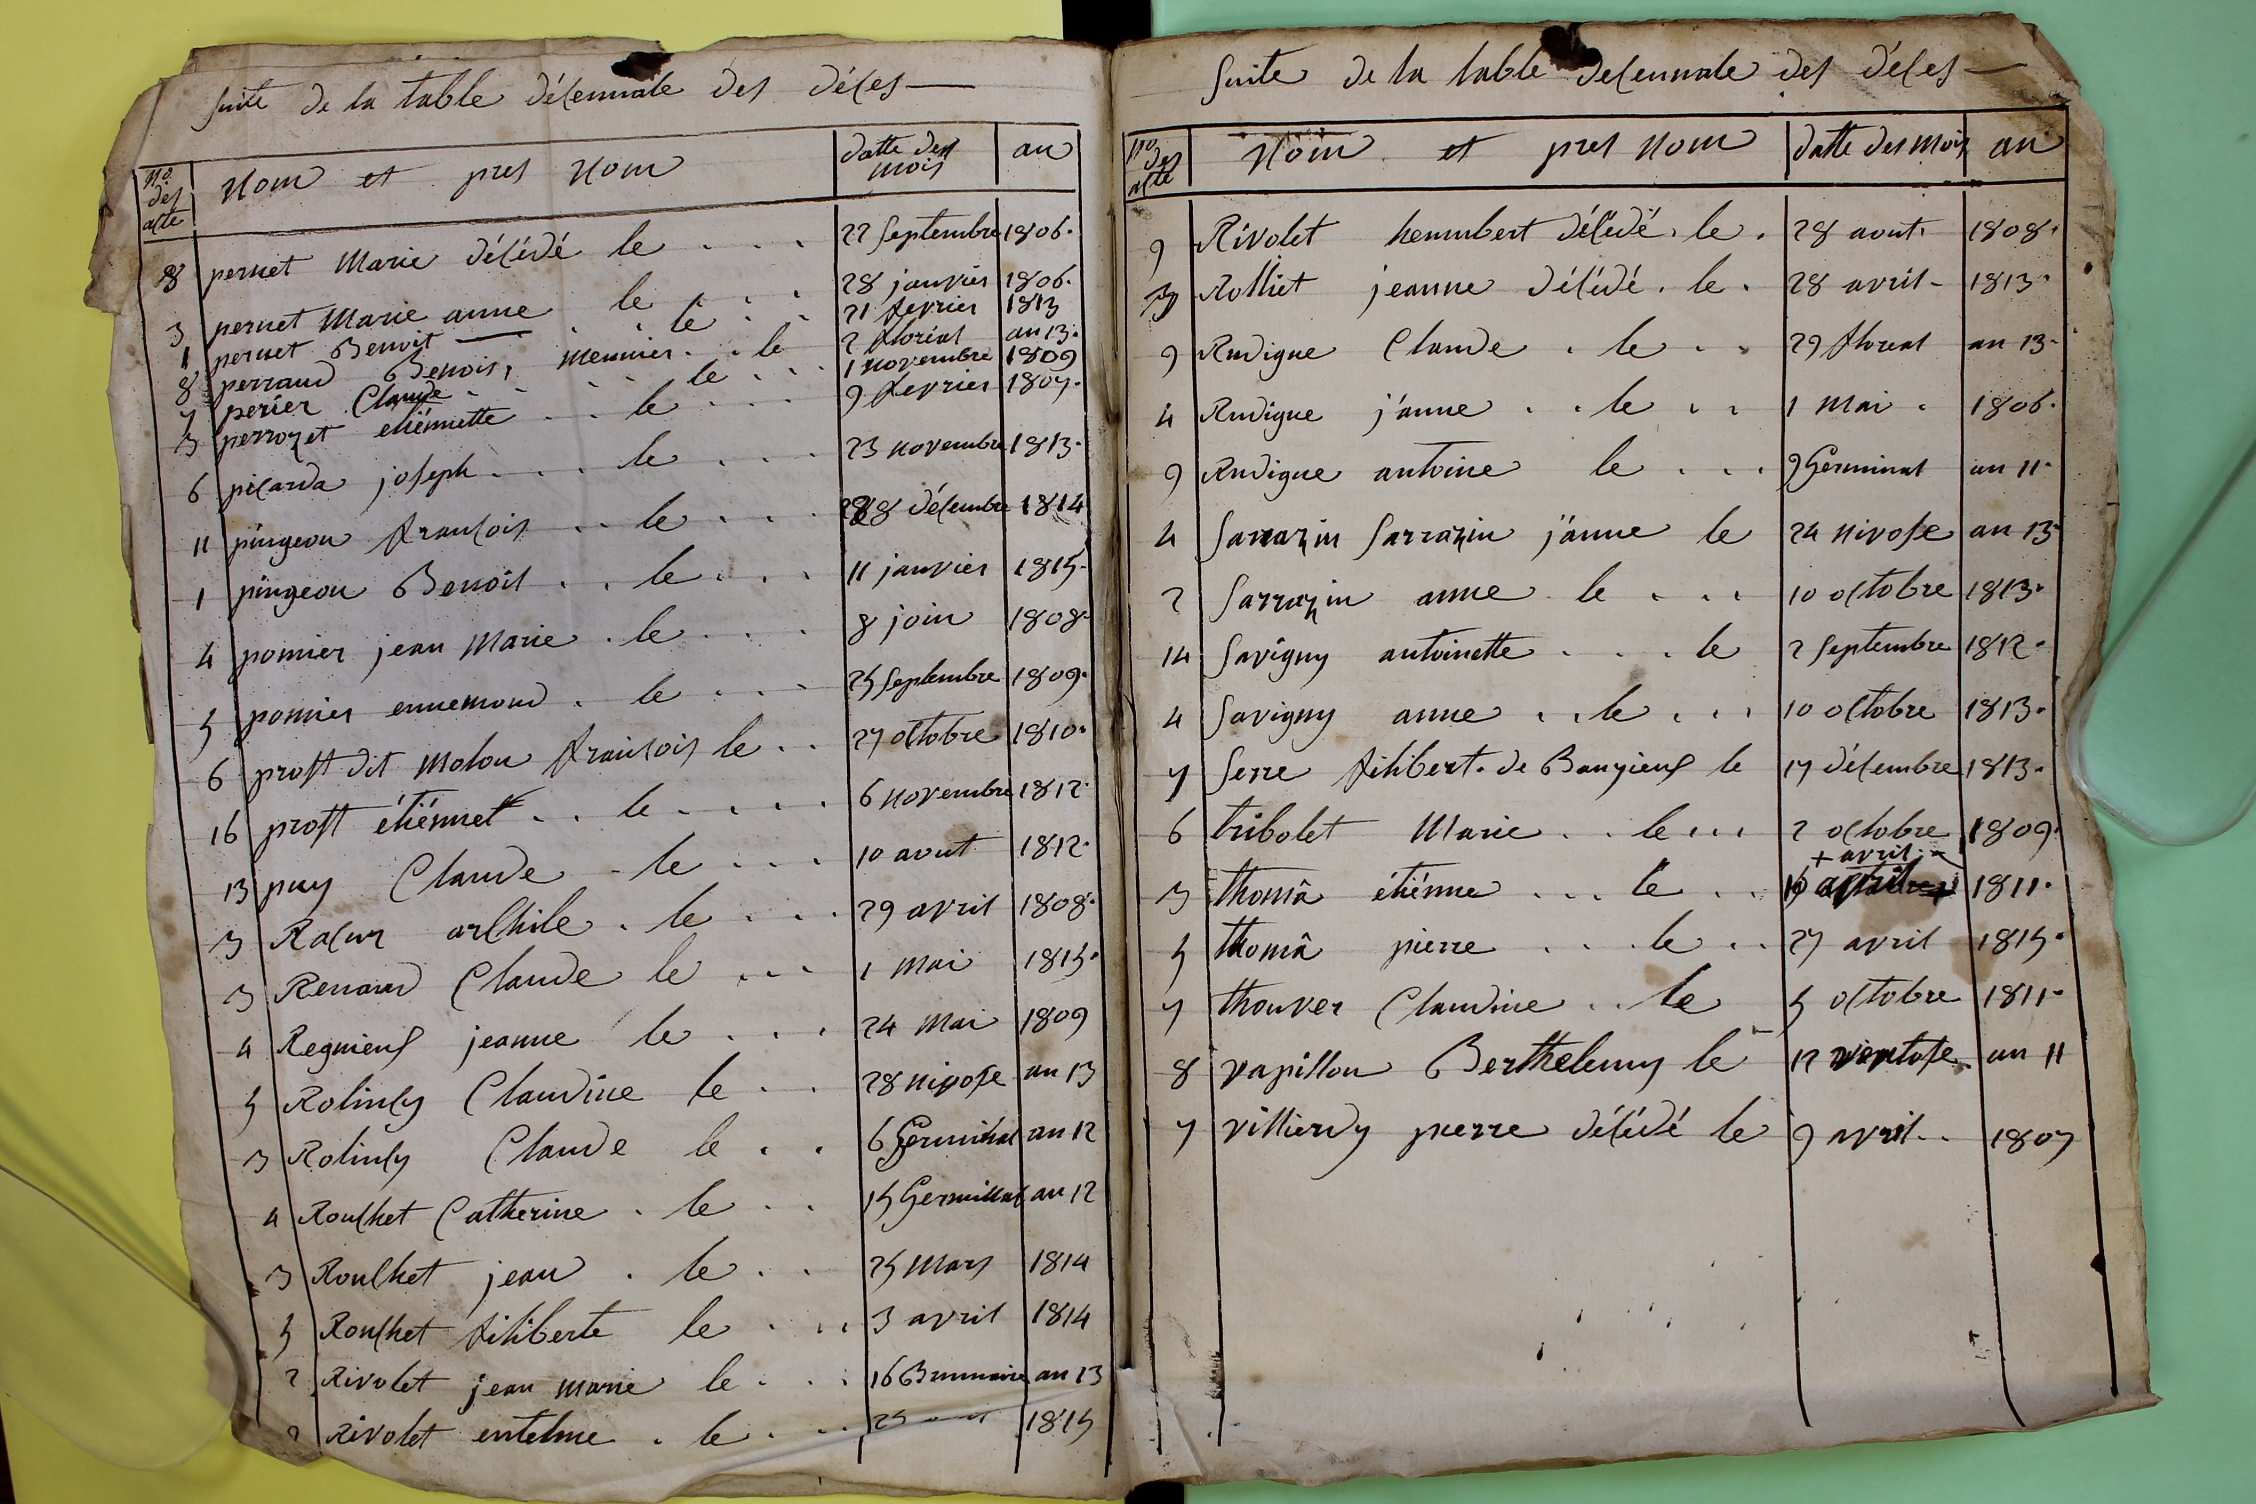 suite de la table décennale des déces
no. des acte nom et pres nom datte des mois an
8 pernet Marie décédé le 22 septembre 1806.
3 pernet Marie anne le 28 janvier 1806.
1 pernet Benoit le 21 fevrier 1813
8 perraud Benoit, meunier le 2 floréal an 13.
7 perier Claude le 1 novembre 1809
3 perrozet etiénnette le 9 fevrier 1807.
6 picarda joseph le 23 novembre 1813.
11 pingeon françois le 28 décembre 1814
1 pingeon Benoit le 11 janvier 1815.
4 pomier jean Marie le 8 join 1808.
5 pomier ennemond le 25 septembre 1809.
6 prost dit molon françois le 27 octobre 1810.
16 prost étiénnet le 6 novembre 1812.
13 puy Claude le 10 aout 1812.
3 Racur archile le 29 avril 1808.
3 Renard Claude le 1 mai 1815.
4 Regnieux jeanne le 24 mai 1809
5 Rolincy Claudine le 28 nivose an 13
3 Rolincy Claude le 6 Germinal an 12
4 Rouchet Catherine le 15 Germillal an 12
3 Rouchet jean le 25 Mars 1814
5 Rouchet filiberte le 3 avril 1814
2 Rivolet jean marie le 16 Brumaire an 13
2 Rivolet entelme le 25 1815
suite de la table decennale des déces
no. des acte nom et pres nom datte des mois an
9 Rivolet hennbert décédé le 28 aout 1808.
3 Rolliet jeanne décédé le 28 avril 1813.
9 Rudigue Claude le 29 floreal an 13.
4 Rudigue j'anne le 1 Mai 1806.
9 Rudigue antoine le 9 Germinal an 11.
4 sarrazin sarrazin j'anne le 24 nivose an 13
2 sarrazin anne le 10 octobre 1813.
14 savigny antoinette le 2 septembre 1812.
4 savigny anne le 10 octobre 1813.
7 serre filibert de Banzieux le 17 décembre 1813.
6 tribolet Marie le 2 octobre 1809.
+ avril
3 thomâ étiénne le 1811.
5 thomâ pierre le 27 avril 1815.
7 thouver Claudine le 5 octobre 1811.
8 vapillon Berthelemy le 12 ventose an 11
7 villierdy pierre décédé le 9 avril 1807